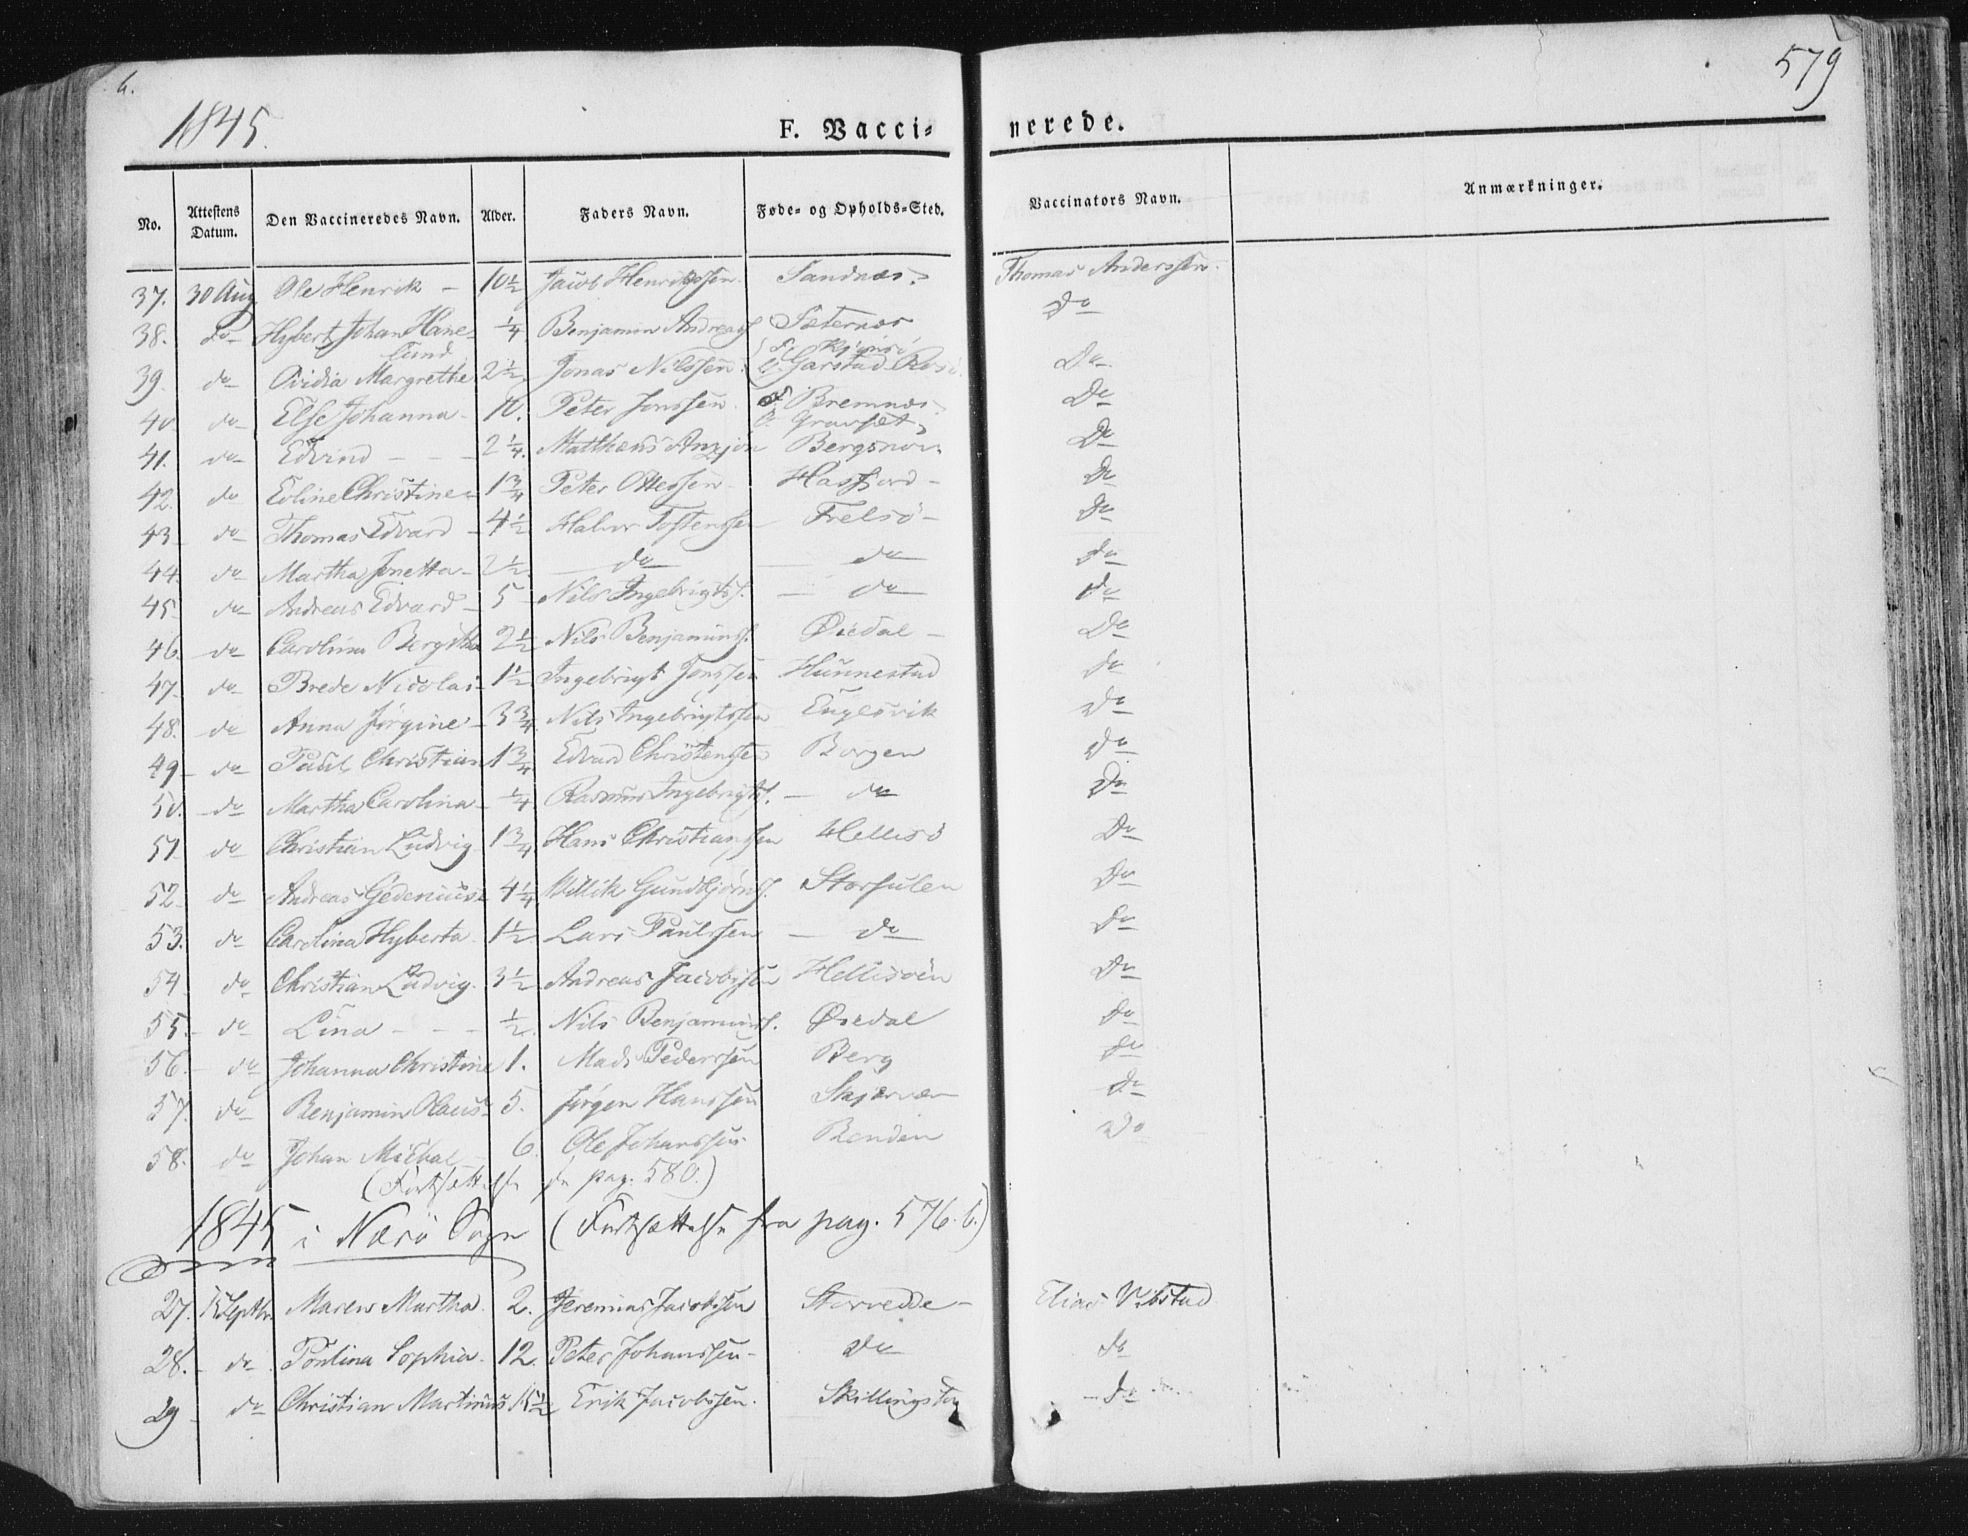 6.
579
1845.
F. Vacci- nerede.
No. Attestens Datum. Den Vaccineredes Navn. Alder. Faders Navn. Føde- og Opholds-Sted. Vaccinators Navn. Anmærkninger.
37. 30 Aug Ole Henrik - 10½ Jacob Henrikssen Sandnæs Thomas Anderssen
38. do Hybert Johan Hane- ¼ Benjamin Andreass Sæternæs do
lund
39. do Ovidia Margrethe 2½ Jonas Nilssen Garstad Do
40 do Else Johanna 10. Peter Jonssen Bremnæs Do
Gravset
41. do Edvind - - - 2¼ Matthæus Bergsnov Do
42. do Eoline Christine 1¾ Peter Ottessen Hasfjord - Do
43 do Thomas Edvard - 4½ Halvor Tostenssen Frelsö - Do
44. do Martha Jonetta 2½ do do do
45 do Andreas Edvard - 5 Nils Ingebrigts. do do
46. do Carolina Bergitha 2½ Nils Benjamins. Øiedal - Do
47. do Brede Nicolai 1½ Ingebrigt Jonssen Hunnestad do
48. do Anna Jørgine - 3¾ Nils Ingebrigtssen Englesvik Do
49 - do Paul Christian 1¾ Edvard Christenssen Borgen Do
50. do Martha Carolina - ¼ Rasmus Ingebrigts. - do Do
51 do Christian Ludvig 1¾ Hans Christianssen Hellisö Do
52. do Andreas Gedenius 4¼ Villik Gundbjörns. Storsulen Do
53. do Carolina Hyberta 1½ Lars Paulssen - do Do
54 do Christian Ludvig. 3½ Andreas Jacobssen Hellisöen Do
55. do Lina - - - ½ Nils Benjamins. Øiedal do
56. - do Johanna Christine 1. Mads Pederssen Berg do
57. do Benjamin Olaus 5. Jørgen Hanssen Skjærvær do
58. do Johan Michal 6. Ole Johanssen Renden Do
(Fortsættelse se pag. 580.)
1845 i Nærö Sogn (Fortsættelse fra pag. 576.b.)
27. Septbr Maren Martha. 2. Jeremias Jacobssen Storvedde - Elias Vibstad
28. - do Pontina Sophia. 12. Peter Johanssen - Do do
29 - do Christian Martinus ½ Erik Jacobssen. Skillingstad - do